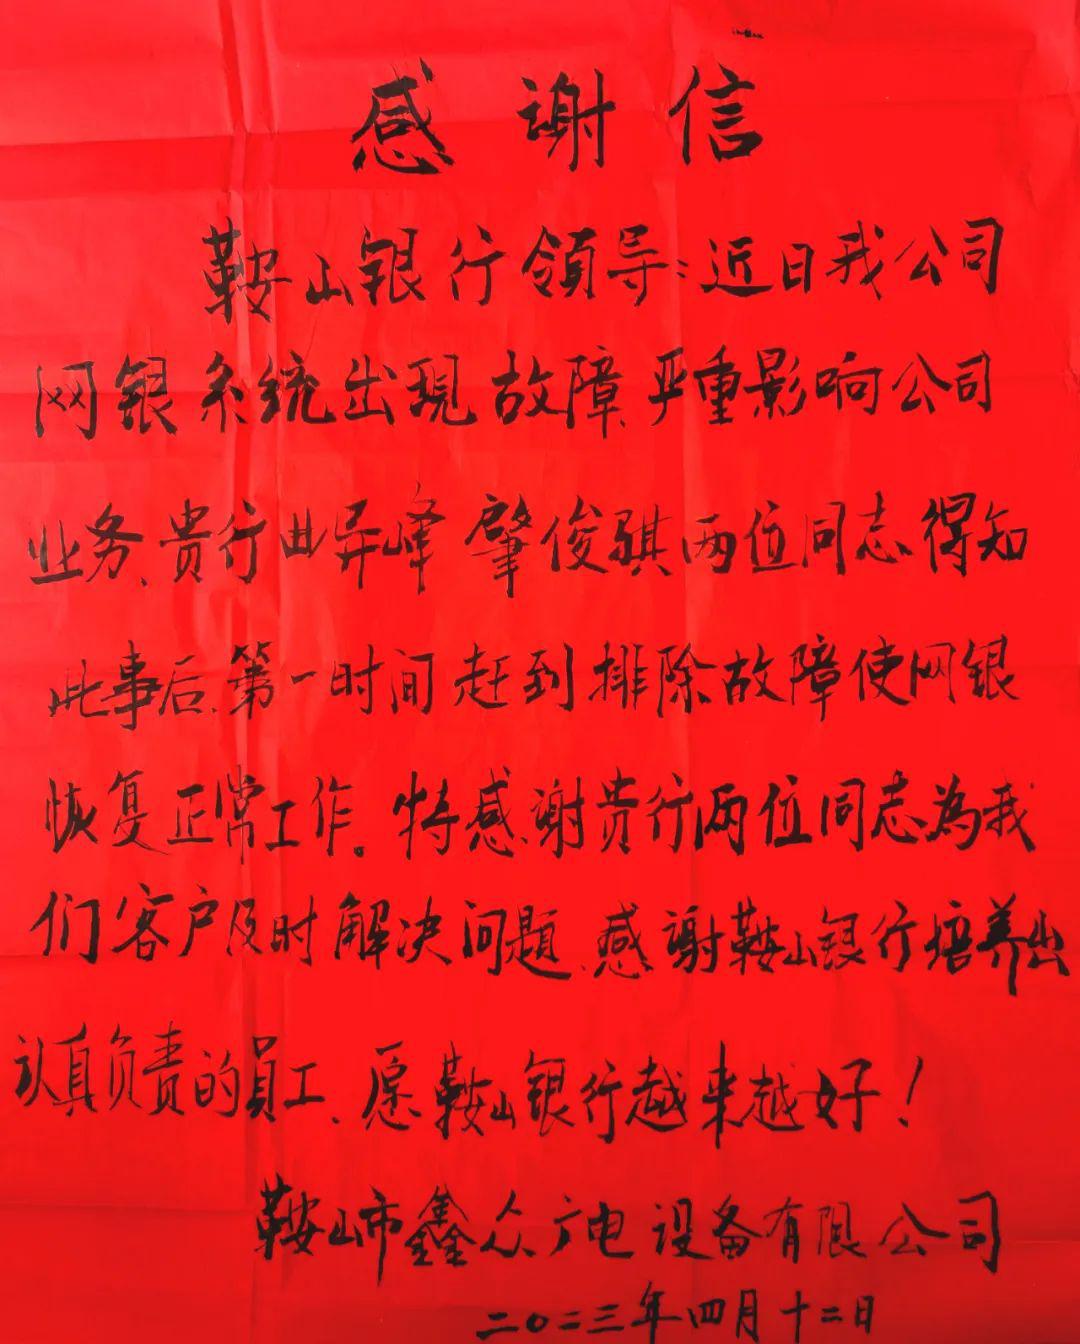 感谢信
鞍山银行領导：近日我公司
网银系统出現故障、严重影响公司
业务、贵行曲异峰 肇俊骐两位同志得知
此事后、第一时间赶到排除故障使网银
恢复正常工作。特感谢贵行两位同志為我
们客户及时解决问題、感谢鞍山银行培养出
认真负责的員工、愿鞍山银行越来越好！
鞍山市鑫众广电设备有限公司
二〇二三年四月十二日